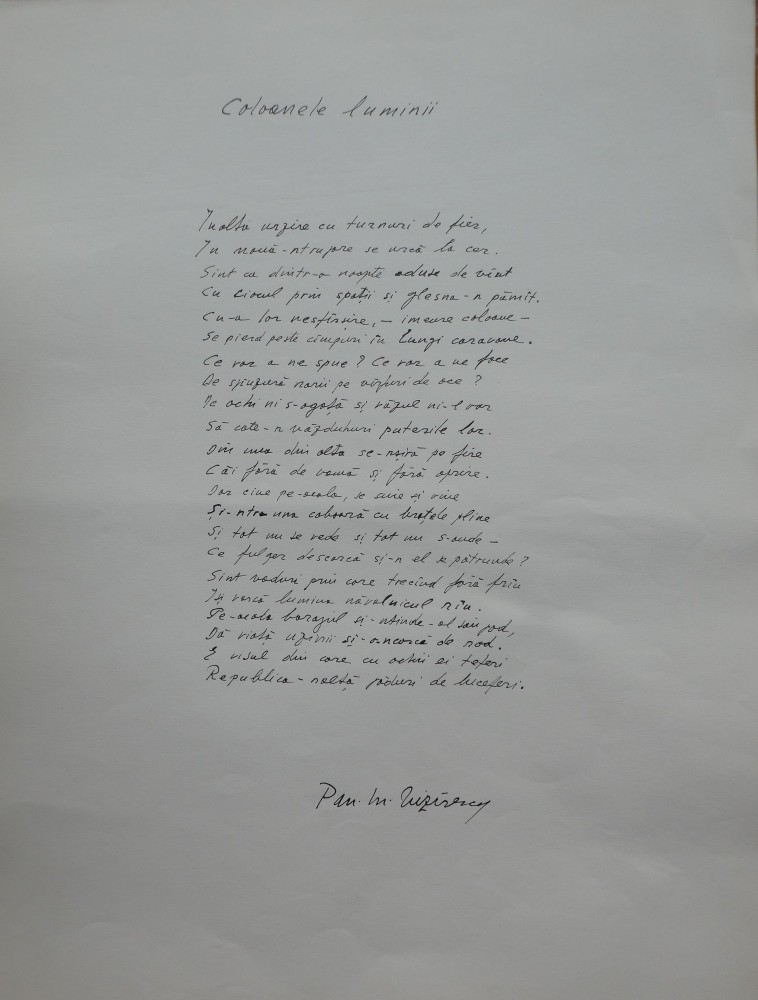 Coloanele luminii
Inaltă urzire cu turnuri de fier,
In nouă-ntrupare se urcă la cer.
Sînt ca dintr-o noapte aduse de vînt
Cu ciocul prin spații și glesna-n pămînt.
Cu-a lor nesfîrșire, – imense coloane –
Se pierd peste cîmpuri în lungi caravane.
Ce vor a ne spune? Ce vor a ne face
De spînzură norii pe vîrfuri de ace?
De ochi ni s-agață și văzul ni-l vor
Să cate-n văzduhuri puterile lor.
Din una din alta se-nșiră pe fire
Căi fără de vamă și fără oprire.
Dar cine pe-acolo, se suie și vine
Și-ntr-una coboară cu brațele pline
Și tot nu se vede și tot nu s-aude –
Ce fulger descarcă și-n el se pătrunde?
Sînt vaduri prin care trecînd fără frîu
Iși varsă lumina năvalnicul rîu.
Pe-acolo barajul și-ntinde-al său pod,
Dă viață uzinii și-o-ncarcă de rod.
E visul din care cu ochii ei teferi
Republica-nalță poduri de luceferi.
Pan. M. Vizirescu